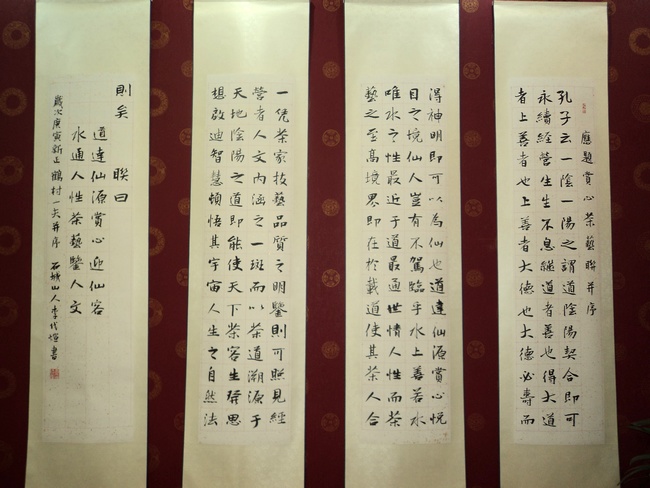 應題賞心茶藝聯并序
孔子云一陰一陽之謂道陰陽契合即可
永續經營生生不息繼道者善也得大道
者上善者也上善者大德也大德必壽而
得神明即可以為仙也道達仙源賞心悅
目之境仙人豈有不駕臨乎水上善若水
唯水之性最近于道最通世情人性而茶
藝之至高境界即在於載道使其茶人合
一凭茶家技藝品質之明鑒則可照見經
營者人文內涵之一斑而以茶道溯源于
天地陰陽之道即能使天下茶客生發思
想啟迪智慧頓悟其宇宙人生之自然法
則矣 聯曰
道達仙源賞心迎仙客
水通人性茶藝鑒人文
歲次庚寅新正鶴村一矢并序 石城山人李代書